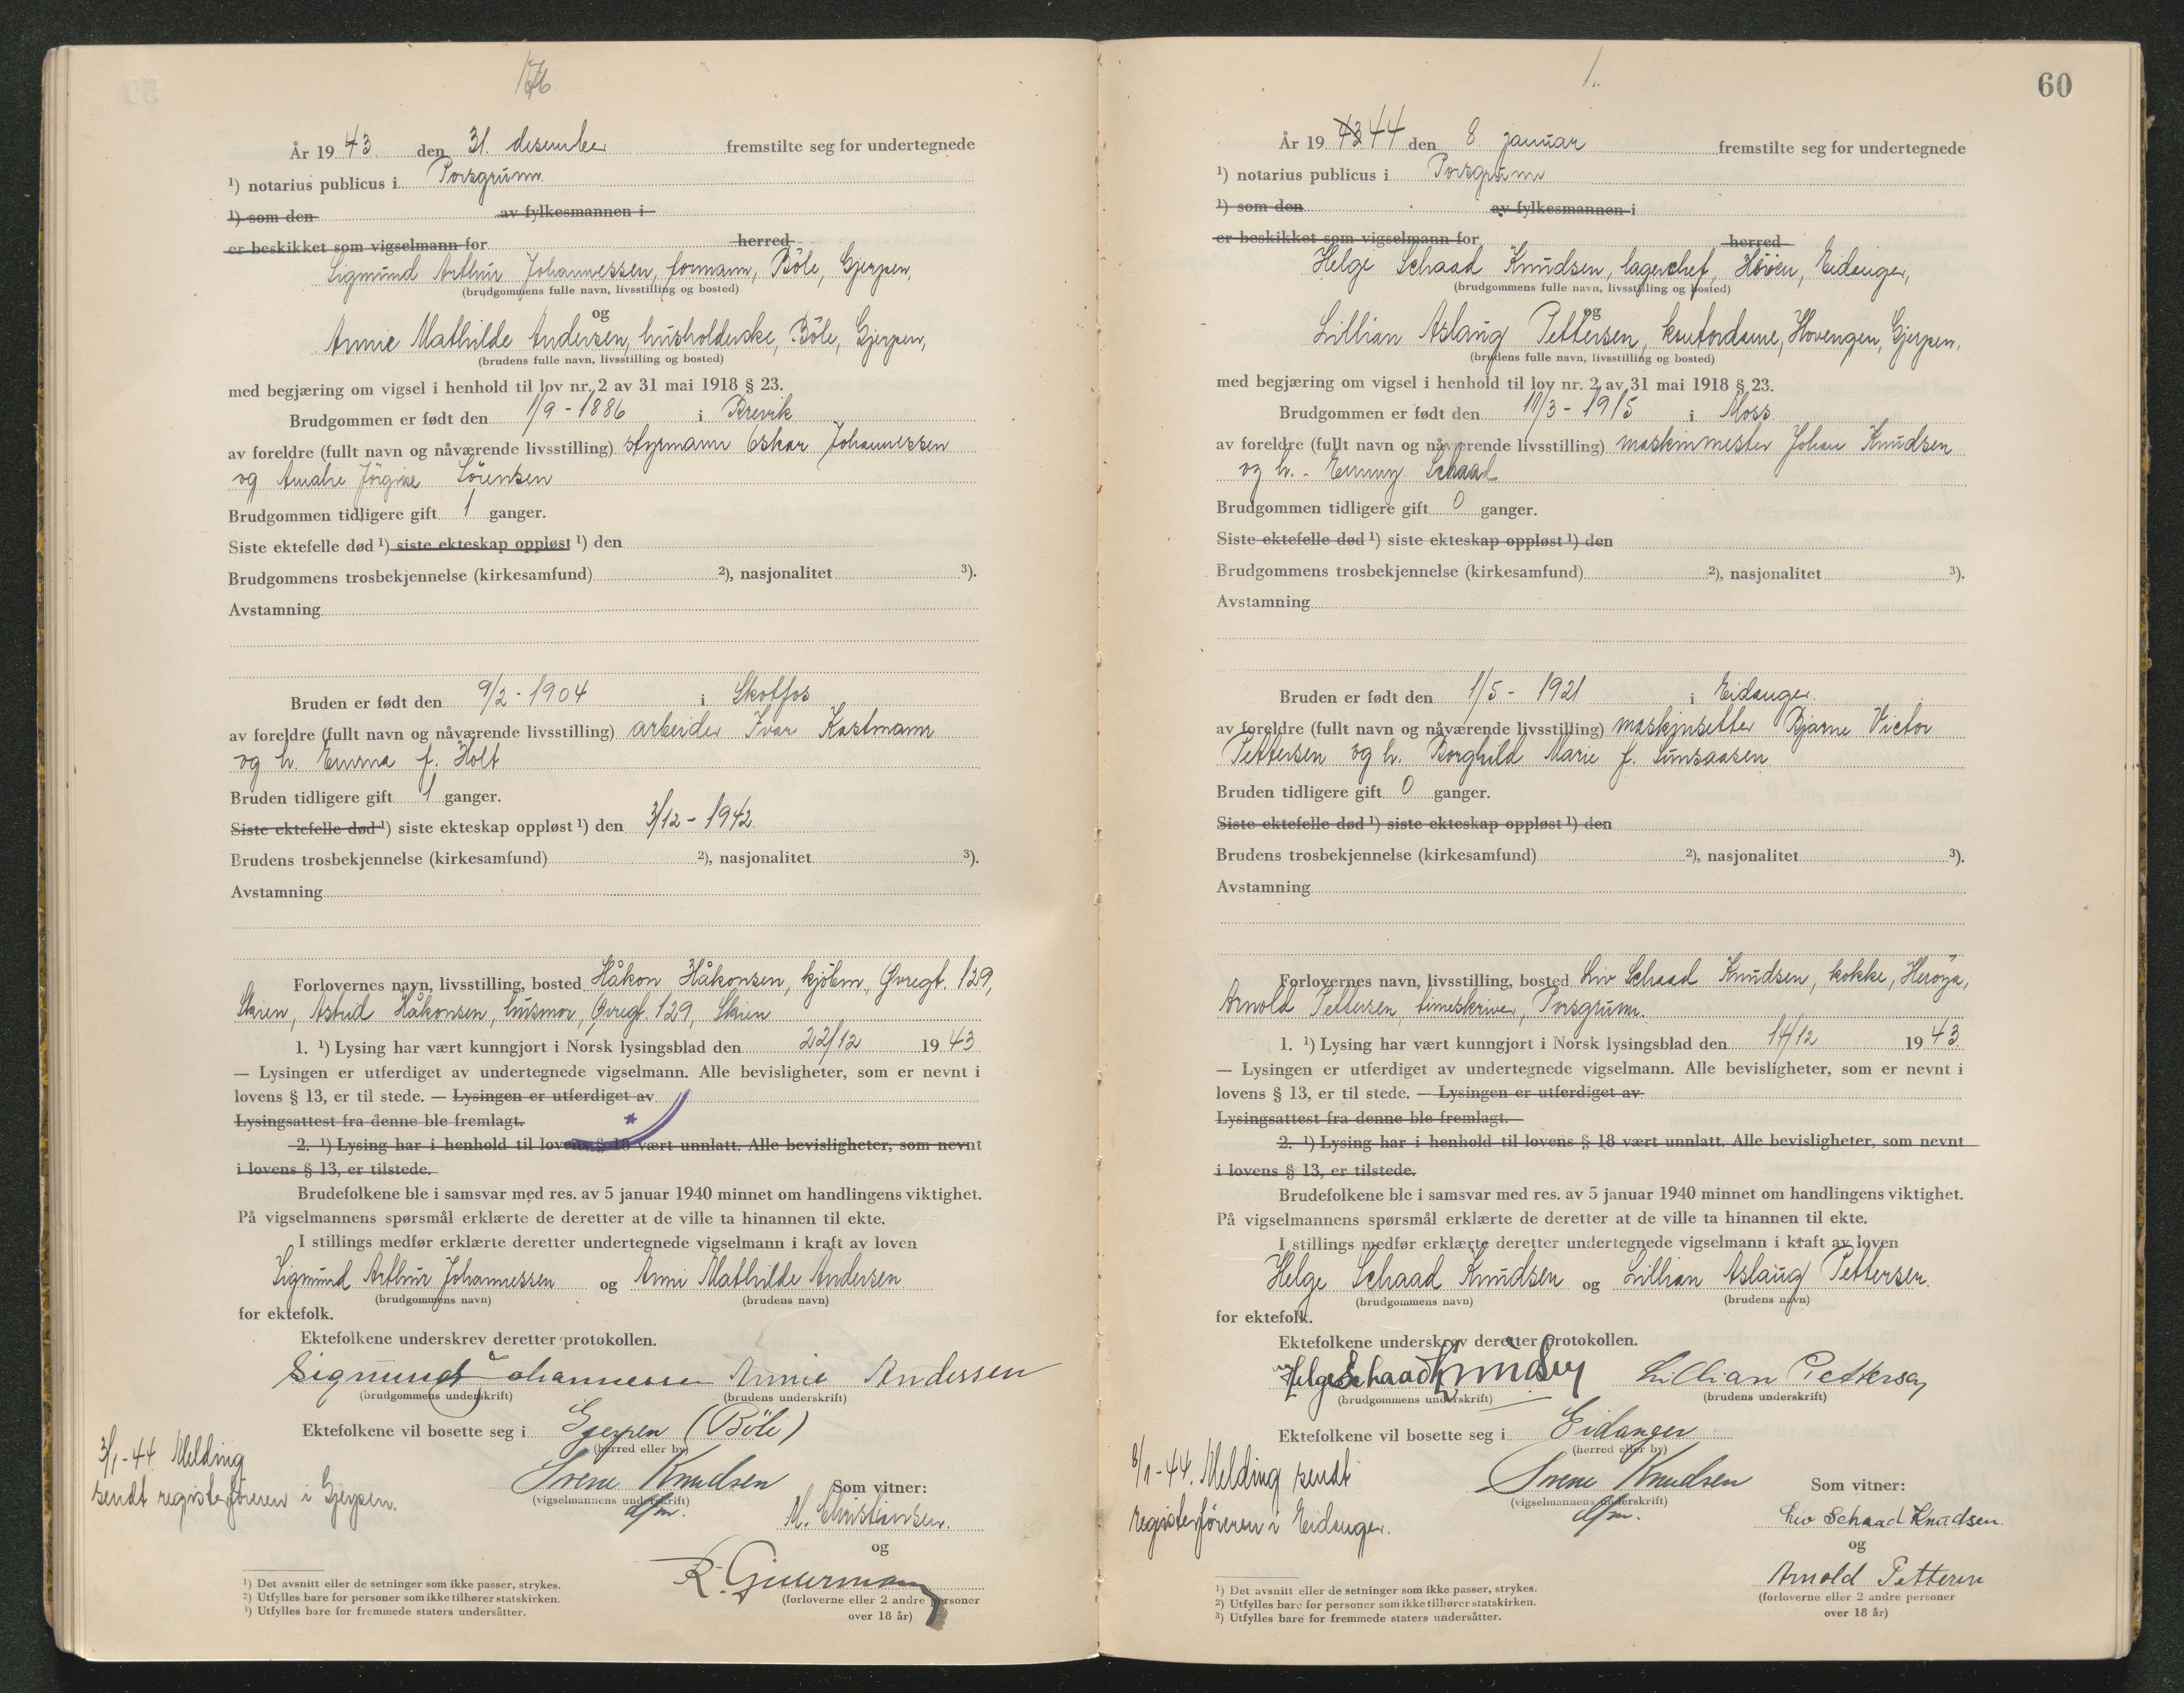 176
År 19 43 den 31. desember fremstilte seg for undertegnede
¹) notarius publicus i Porsgrunn
¹) som den av fylkesmannen i
er beskikket som vigselmann for herred
Sigmund Arthur Johannessen, formann, Böle, Gjerpen,
(brudgommens fulle navn, livsstilling og bosted)
og
Annie Mathilde Andersen, husholderske, Böle, Gjerpen,
(brudens fulle navn, livsstilling og bosted)
med begjæring om vigsel i henhold til lov nr. 2 av 31 mai 1918 § 23.
Brudgommen er født den 1/9 - 1886 i Brevik
av foreldre (fullt navn og nåværende livsstilling) styrmann Oskar Johannessen
og Amalie Jörgine Sörensen
Brudgommen tidligere gift 1 ganger.
Siste ektefelle død ¹) siste ekteskap oppløst ¹) den
Brudgommens trosbekjennelse (kirkesamfund) ²), nasjonalitet ³).
Avstamning
Bruden er født den 9/2 - 1904 i Skotfos
av foreldre (fullt navn og nåværende livsstilling) arbeider Ivar Kastmann
og h. Emma f. Holt
Bruden tidligere gift 1 ganger.
Siste ektefelle død ¹) siste ekteskap oppløst ¹) den 3/12 - 1942.
Brudens trosbekjennelse (kirkesamfund) ²), nasjonalitet ³).
Avstamning
Forlovernes navn, livsstilling, bosted Håkon Håkonsen, kjöbm., Øvregt. 129,
Skien, Astrid Håkonsen, husmor, Øvregt. 129, Skien
1. ¹) Lysing har vært kunngjort i Norsk lysingsblad den 22/12 19 43
— Lysingen er utferdiget av undertegnede vigselmann. Alle bevisligheter, som er nevnt i
lovens § 13, er til stede. — Lysingen er utferdiget av
Lysingsattest fra denne ble fremlagt.
2. ¹) Lysing har i henhold til lovens § 18 vært unnlatt. Alle bevisligheter, som nevnt
i lovens § 13, er tilstede.
Brudefolkene ble i samsvar med res. av 5 januar 1940 minnet om handlingens viktighet.
På vigselmannens spørsmål erklærte de deretter at de ville ta hinannen til ekte.
I stillings medfør erklærte deretter undertegnede vigselmann i kraft av loven
Sigmund Arthur Johannessen og Anni Mathilde Andersen
(brudgommens navn) (brudens navn)
for ektefolk.
Ektefolkene underskrev deretter protokollen.
Sigmund Johannessen Annie Andersen
(brudgommens underskrift) (brudens underskrift)
Ektefolkene vil bosette seg i Gjerpen (Böle)
(herred eller by)
3/1-44 Melding
sendt registerföreren i Gjerpen.
Svene Knudsen
(vigselmannens underskrift)
Som vitner:
M. Christiansen.
og
(forloverne eller 2 andre personer
over 18 år)
¹) Det avsnitt eller de setninger som ikke passer, strykes.
²) Utfylles bare for personer som ikke tilhører statskirken.
³) Utfylles bare for fremmede staters undersåtter.
1.
60
År 19 43 44 den 8. januar fremstilte seg for undertegnede
¹) notarius publicus i Porsgrunn
¹) som den av fylkesmannen i
er beskikket som vigselmann for herred
Helge Schaad Knudsen, lagerchef, Heröen, Eidanger,
(brudgommens fulle navn, livsstilling og bosted)
og
Lillian Aslaug Pettersen, kontordame, Hovengen, Gjerpen,
(brudens fulle navn, livsstilling og bosted)
med begjæring om vigsel i henhold til lov nr. 2 av 31 mai 1918 § 23.
Brudgommen er født den 11/3 - 1915 i Moss.
av foreldre (fullt navn og nåværende livsstilling) maskinmester Johan Knudsen
og h. - Emmy Schaad
Brudgommen tidligere gift 0 ganger.
Siste ektefelle død ¹) siste ekteskap oppløst ¹) den
Brudgommens trosbekjennelse (kirkesamfund) ²), nasjonalitet ³).
Avstamning
Bruden er født den 1/5 - 1921 i Eidanger.
av foreldre (fullt navn og nåværende livsstilling) maskinsetter Bjarne Victor
Pettersen og h. Borghild Marie f. Sunsaasen
Bruden tidligere gift 0 ganger.
Siste ektefelle død ¹) siste ekteskap oppløst ¹) den
Brudens trosbekjennelse (kirkesamfund) ²), nasjonalitet ³).
Avstamning
Forlovernes navn, livsstilling, bosted Liv Schaad Knudsen, kokke, Heröya,
Arnold Pettersen, timeskriver, Porsgrunn.
1. ¹) Lysing har vært kunngjort i Norsk lysingsblad den 14/12 19 43
— Lysingen er utferdiget av undertegnede vigselmann. Alle bevisligheter, som er nevnt i
lovens § 13, er til stede. — Lysingen er utferdiget av
Lysingsattest fra denne ble fremlagt. —
2. ¹) Lysing har i henhold til lovens § 18 vært unnlatt. Alle bevisligheter, som nevnt
i lovens § 13, er tilstede.
Brudefolkene ble i samsvar med res. av 5 januar 1940 minnet om handlingens viktighet.
På vigselmannens spørsmål erklærte de deretter at de ville ta hinannen til ekte.
I stillings medfør erklærte deretter undertegnede vigselmann i kraft av loven
Helge Schaad Knudsen og Lillian Aslaug Pettersen.
(brudgommens navn) (brudens navn)
for ektefolk.
Ektefolkene underskrev deretter protokollen.
Helge Schaad Knudsen Lillian Pettersen
(brudgommens underskrift) (brudens underskrift)
Ektefolkene vil bosette seg i Eidanger
(herred eller by)
8/1-44. Melding sendt
registerföreren i Eidanger.
Svene Knudsen
(vigselmannens underskrift)
Som vitner:
Liv Schaad Knudsen.
og
Arnold Pettersen
(forloverne eller 2 andre personer
over 18 år)
¹) Det avsnitt eller de setninger som ikke passer, strykes.
²) Utfylles bare for personer som ikke tilhører statskirken.
³) Utfylles bare for fremmede staters undersåtter.